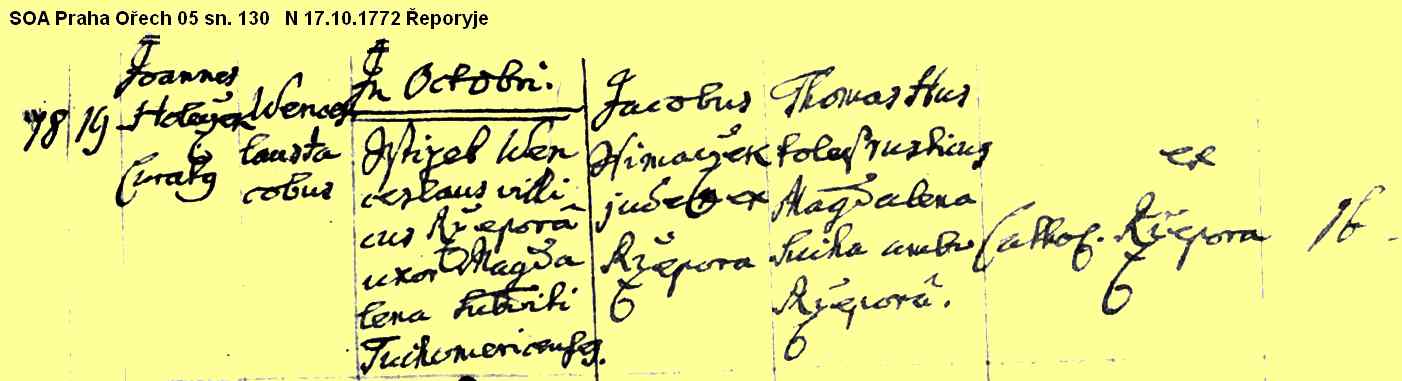 SOA Praha Ořech 05 sn. 130 N 17.10.1772 Řeporyje
18 19
Joannes
Holeyšek
Curatg
Wences
laus Ja
cobus
In Octobri.
Wen
ceslaus villi
cus Ržeporâ
uxor Magda
lena Subditi
Jacobus
judex ex
Ržepora
Thomas Hus
koleš rusticus
Magdalena
Sucha ambo
Ržeporâ.
Cathol.
ex
Ržepora
16